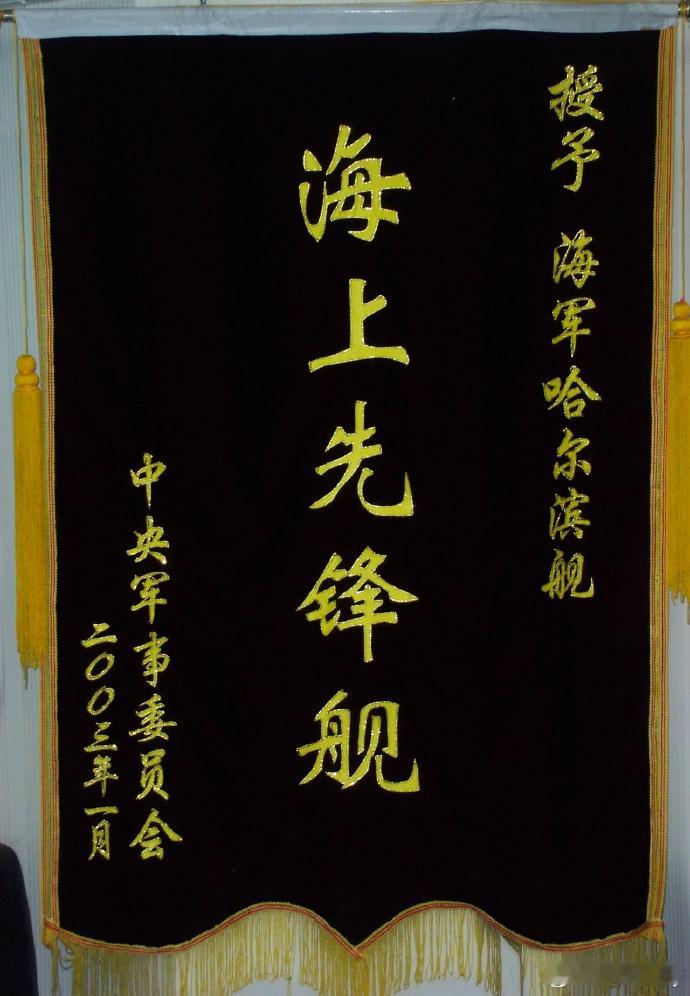 授予 海军哈尔滨舰
海上先锋舰
中央军事委员会
二〇〇三年一月